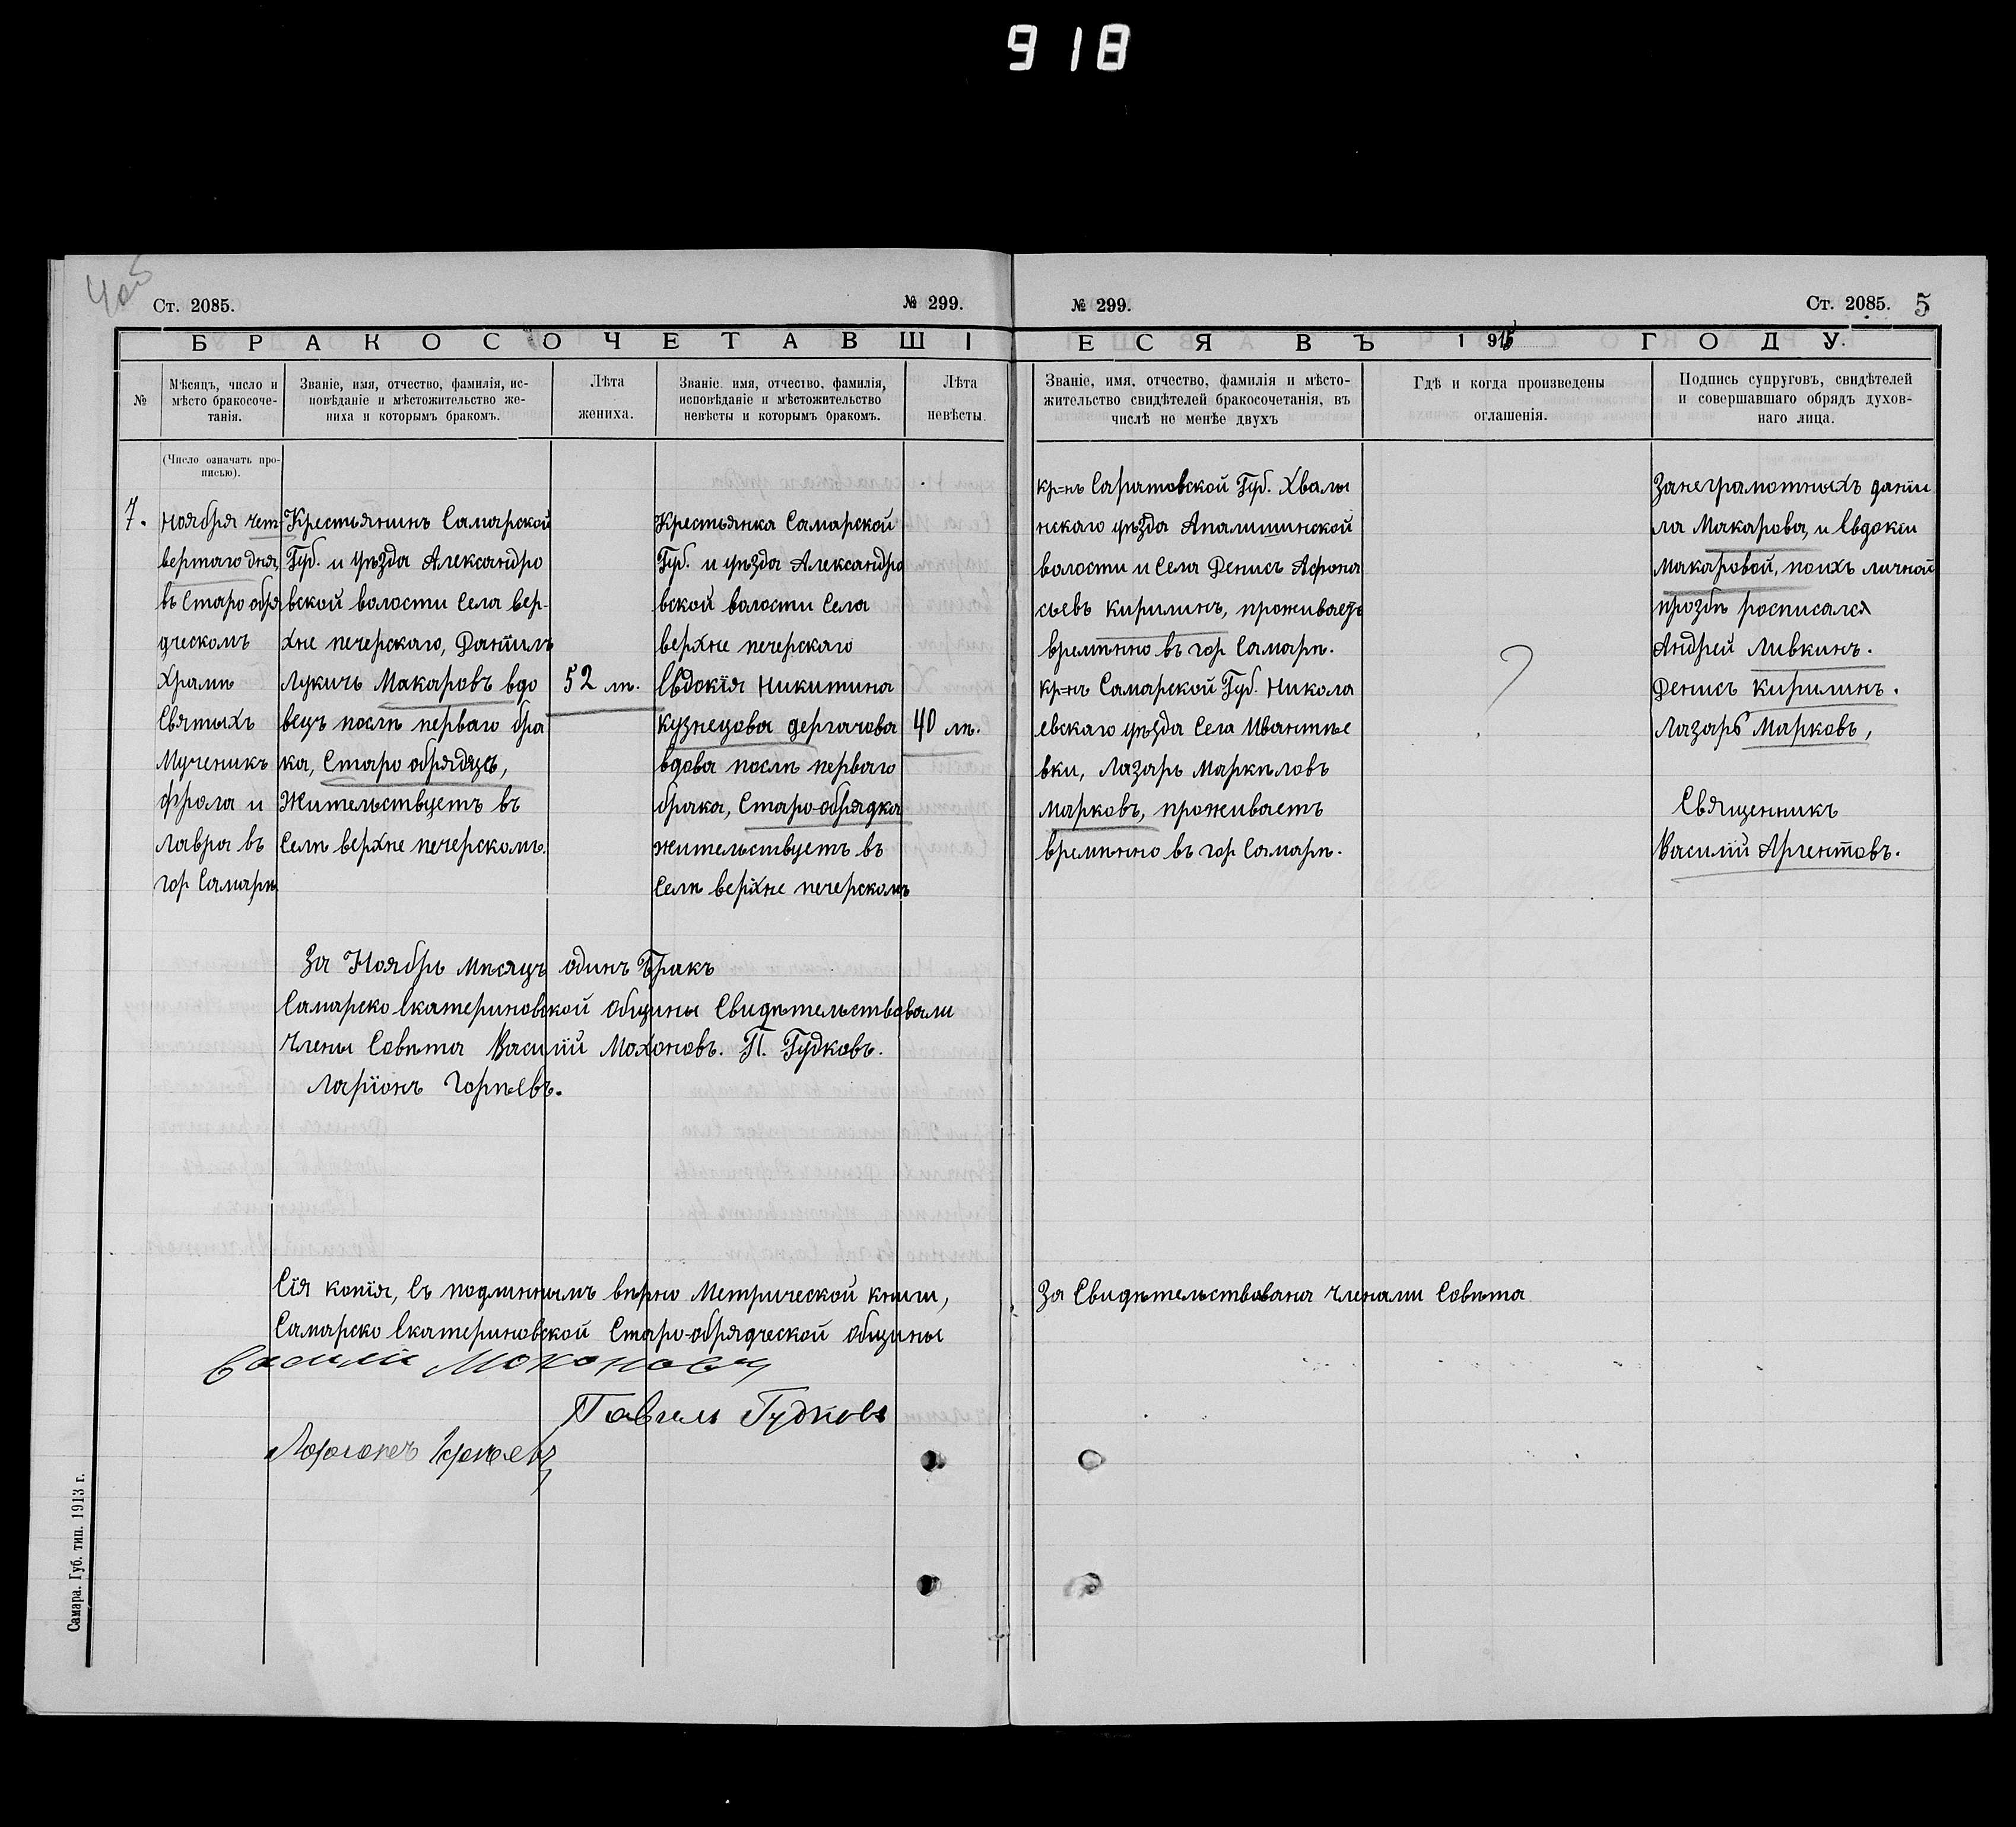 918
Ст. 2085.
№ 299.
№ 299.
Ст. 2085. 5
БРАКОСОЧЕТАВШІ
ЕСЯ ВЪ 1915 ГОДУ.
№
Мѣсяцъ, число и
мѣсто бракосоче-
танія.
Званіе, имя, отчество, фамилія, ис-
повѣданіе и мѣстожительство же-
ниха и которымъ бракомъ.
Лѣта
жениха.
Званіе. имя, отчество, фамилія,
исповѣданіе и мѣстожительство
невѣсты и которымъ бракомъ.
Лѣта
невѣсты.
Званіе, имя, отчество, фамилія и мѣсто-
жительство свидѣтелей бракосочетанія, въ
числѣ не менѣе двухъ
Гдѣ и когда произведены
оглашенія.
Подпись супруговъ, свидѣтелей
и совершавшаго обрядъ духов-
наго лица.
(Число означать про-
писью).
7.
Ноября чет
вертаго дня,
въ Старо обря
дческомъ
Храмѣ
Святыхъ
Мученикъ
фрола и
Лавра въ
гор Самарѣ
Крестьянинъ Самарской
Губ. и уѣзда Александро
вской волости Села вер-
хне печерскаго, Данїилъ
Лукичъ Макаровъ вдо
вецъ послѣ перваго бра
ка, Старо обрядецъ,
Жительствуетъ въ
Селѣ верхне печерскомъ.
52 лѣ.
Крестьянка Самарской
Губ. и уѣзда Александро
вской волости Села
верхне печерскаго
Евдокїя Никитина
кузнецова дергачова
вдова послѣ перваго
брака, Старо-обрядка
жительствуетъ въ
Селѣ верхне печерскомъ
40 лѣ.
кр=нъ Саратовской Губ. Хвалы
нскаго уѣзда Апалишинской
волости и Села Денисъ Афона
сьевъ Кирилинъ, проживаетъ
времѣнно въ гор Самарѣ.
кр=нъ Самарской Губ. Никола
евскаго уѣзда Села Ивантѣе
вки, Лазарь Маркѣловъ
Марковъ, проживаетъ
времѣнно въ гор Самарѣ.
?
Занеграмотныхъ данїи
ла Макарова, и Евдокїи
Макаровой, поихъ личной
прозбѣ росписался
Андрей Ливкинъ.
Денисъ Кирилинъ.
Лазарь Марковъ,
Священникъ
Василїй Аргентовъ.
За Ноябрь мѣсяцъ одинъ Бракъ
Самарско Екатериновской Общины Свидѣтельствовали
Члены Совѣта Василїй Мохоновъ. П. Гудковъ.
Ларїонъ Горѣевъ.
Сїя копїя, съ подлиннымъ вѣрно Метрической книги,
Самарско Екатериновской Старо-обрядческой общины
За Свидѣтельствована Членами Совѣта
Василїй Мохоновъ
Павелъ Гудковъ
Самара. Губ. тип. 1913 г.